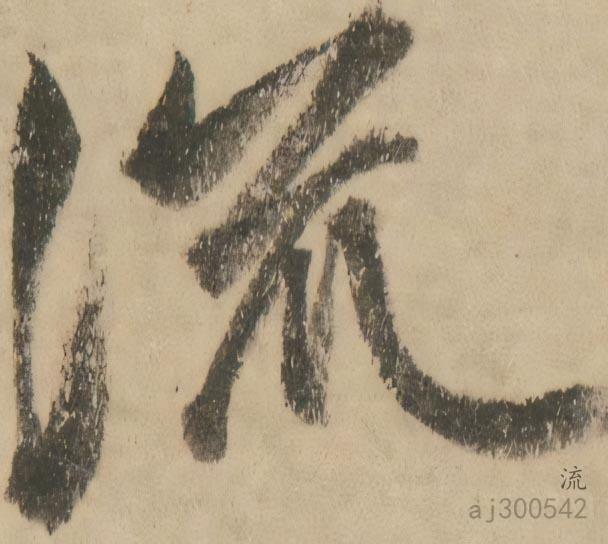 流
流
aj300542